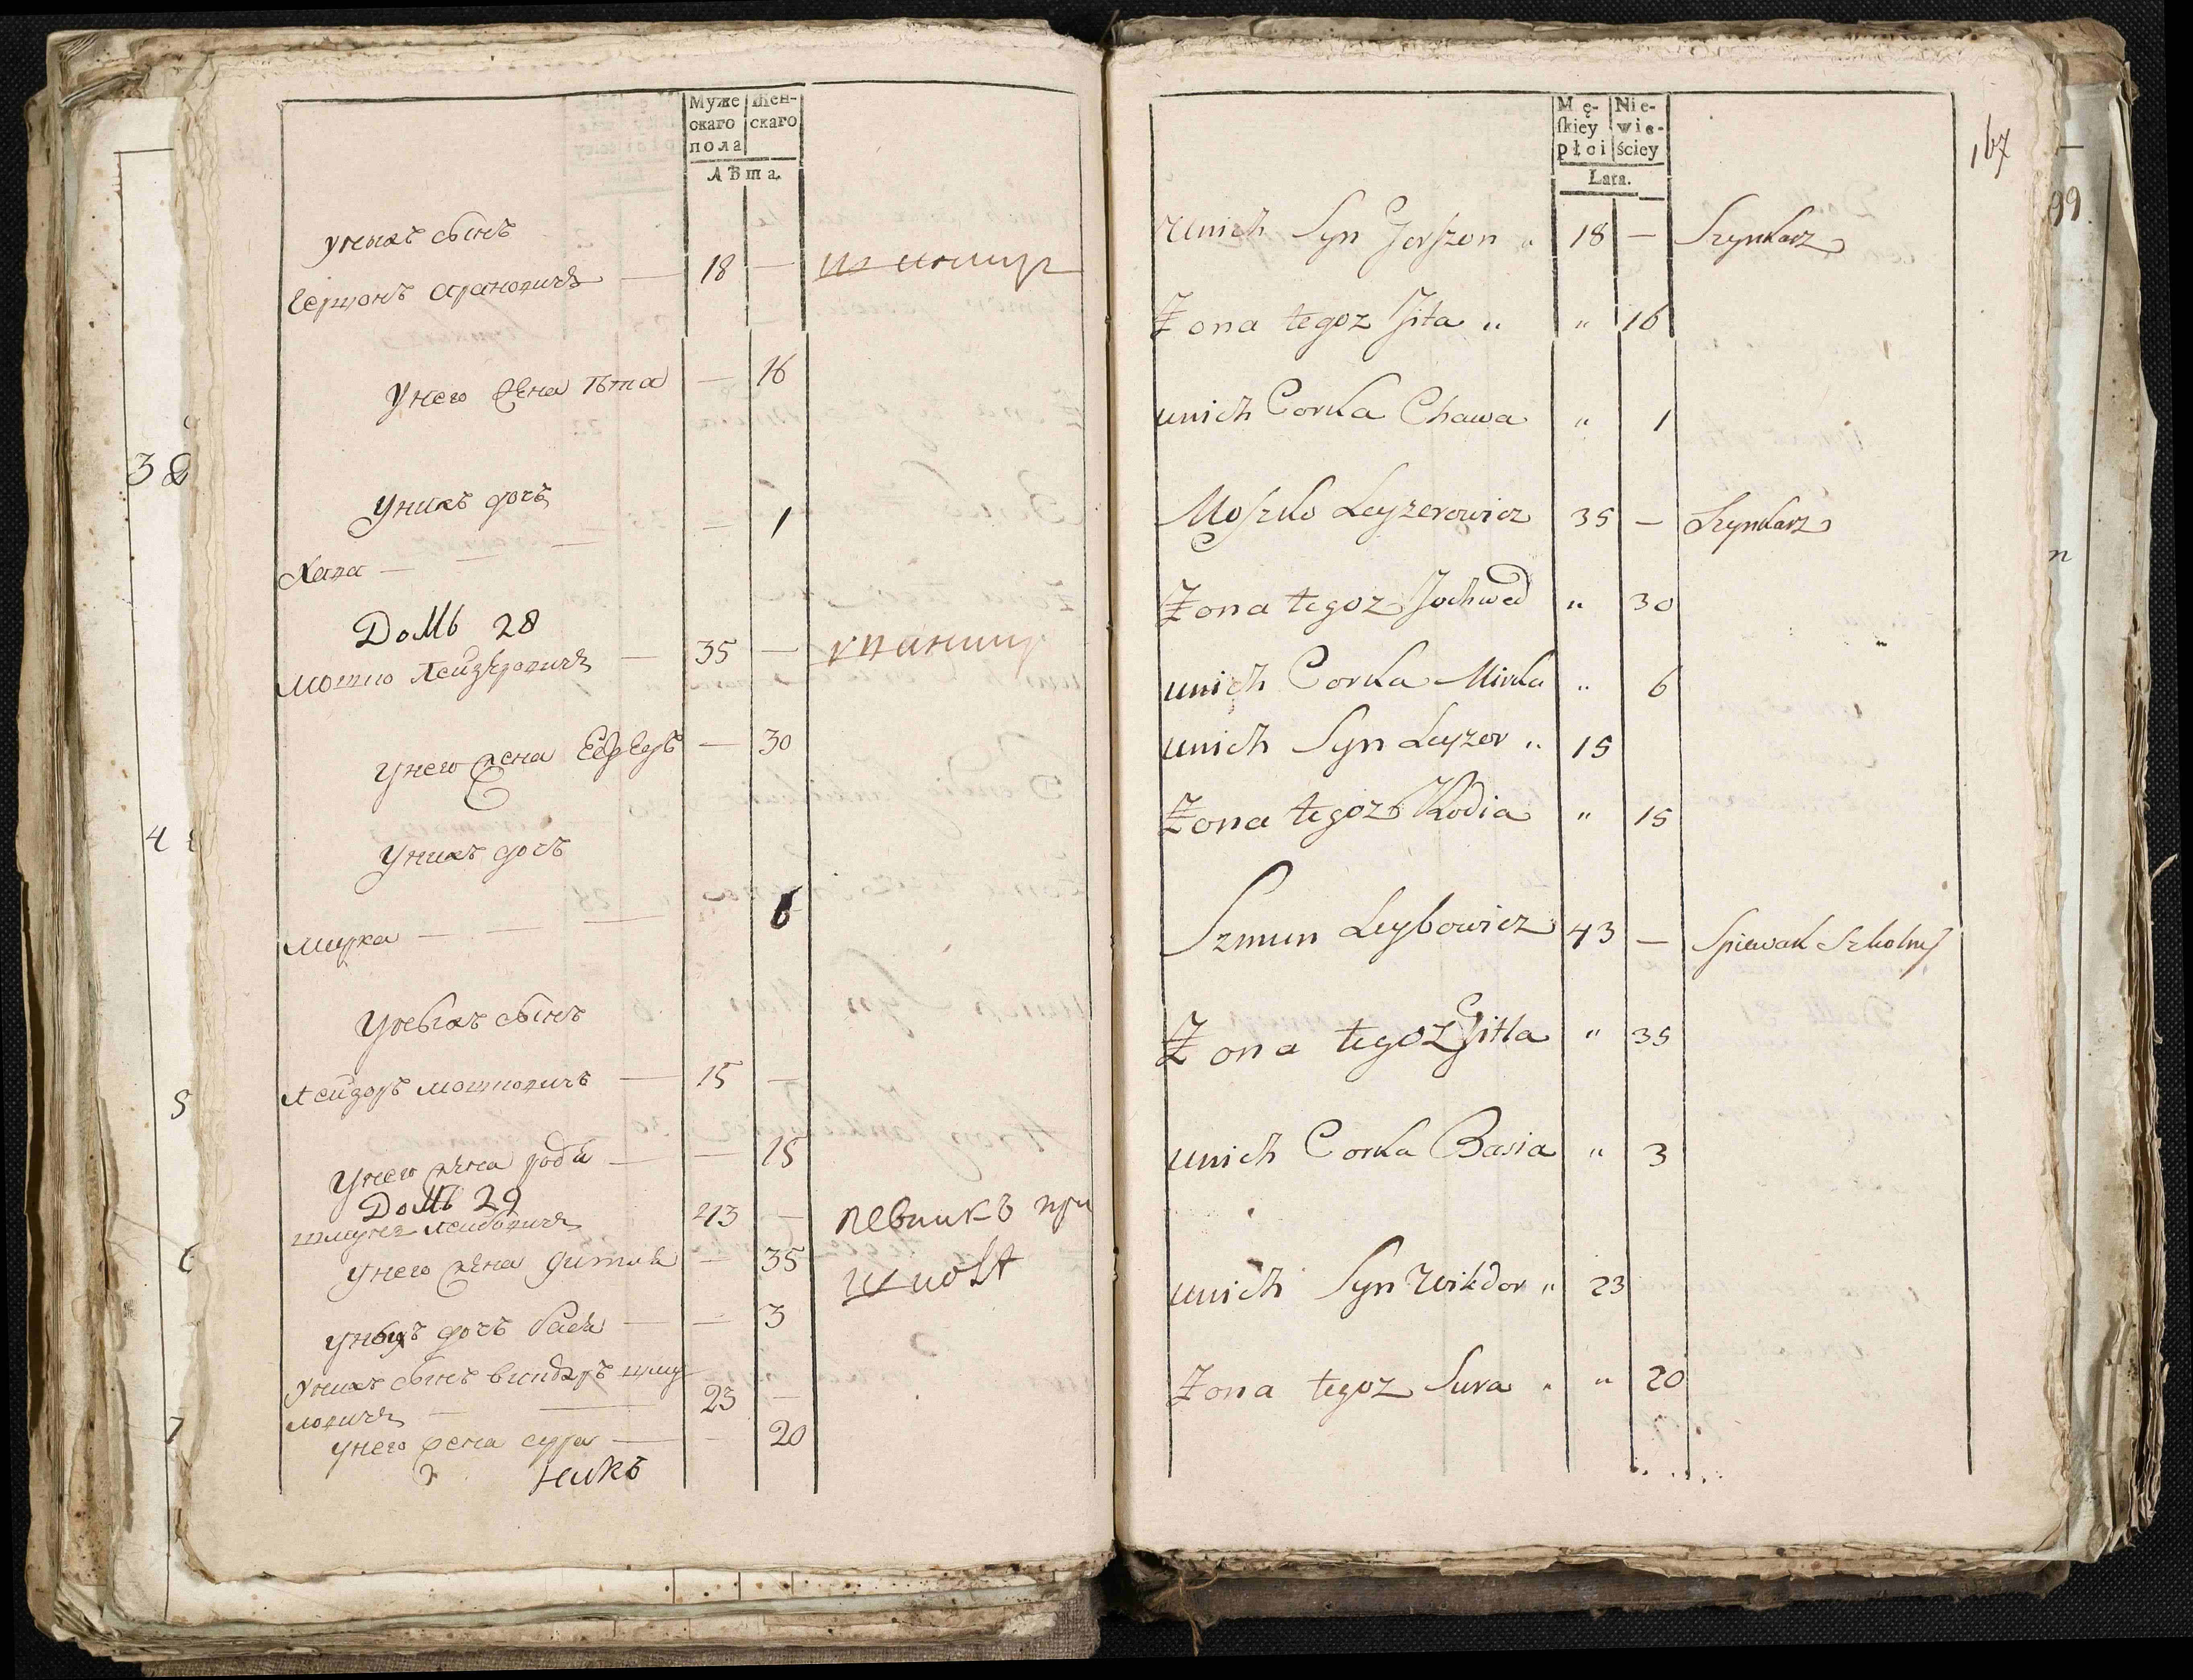 Муже
скаго
пола
Жен-
скаго
Лѣта.
унихъ сынъ
Гершонъ Ароновичъ — 18 —
Унего жена Ита — 16
Унихъ дочь — 1
Хава —
Домъ 28
Мошко Лейзеровичъ — 35 —
Унего жена — 30
Унихъ дочь
Мирка — 6
Унихъ сынъ
Лейзоръ Мошковичъ — 15 —
Унего жена родя — 15
Домъ 29
Шмунъ Лейбовичъ 43 — певчикъ при
Унего жена Гитля — 35 школѣ
Унихъ дочь Бася — 3
Унихъ сынъ Викдоръ Шму
ловичъ — 23 —
Унего жена сура — 20
никъ
38
4
5
6
7
Mę-
ſkiey
płci
Nie-
wie-
ściey
Lata.
167
99.
Unich Syn Jerszon „ 18 — Szynkarz
Zona tegoz Jita „ „ 16
unich Corka Chawa „ 1
Moszko Leyzerowicz 35 — Szynkarz
Zona tegoz Jochwed „ 30
unich Corka Mirka „ 6
unich Syn Leyzor „ 15
Zona tegoz Rodia „ 15
Szmun Leybowicz 43 — Spiewak Szkolny
Zona tegoz Gitla „ 35
unich Corka Basia „ 3
unich Syn Wikdor „ 23
Zona tegoz Sura „ „ 20